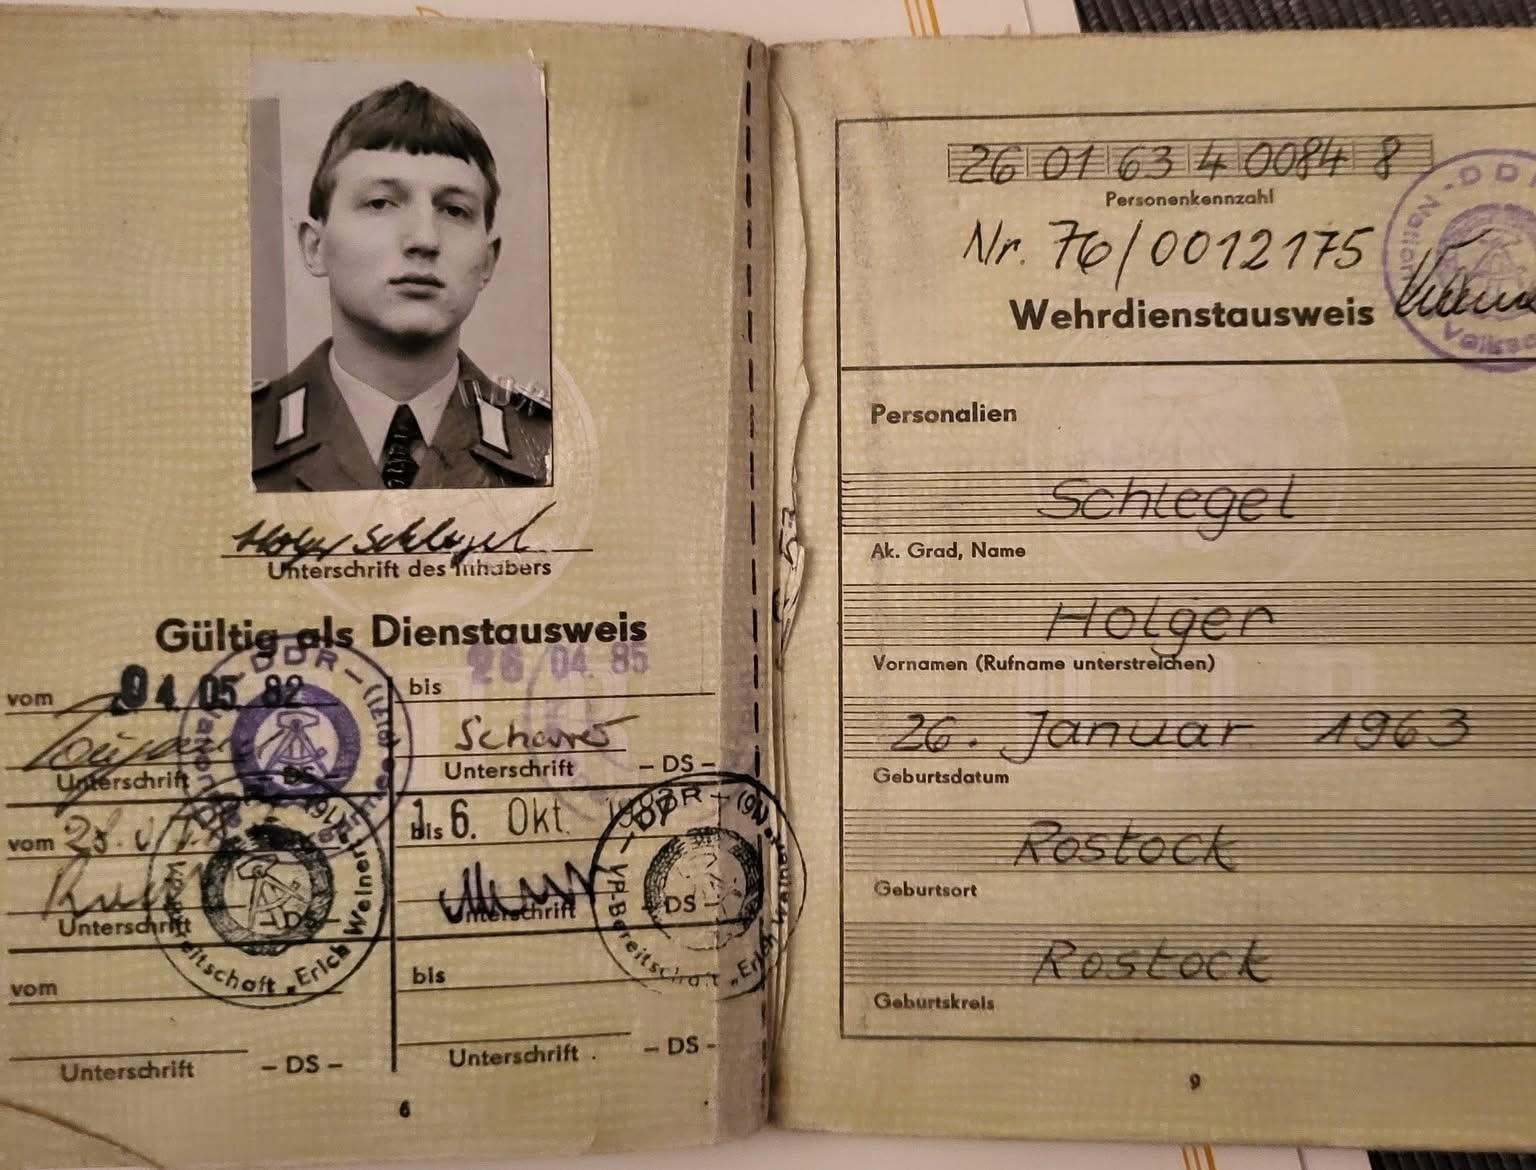 Holger Schlegel
Unterschrift des Inhabers
Gültig als Dienstausweis
vom 04 05 82
bis 26/04. 85
Unterschrift – DS –
Unterschrift – DS –
vom
bis 16. Okt.
Unterschrift
Unterschrift – DS –
– DDR –
VP-Bereitschaft „Erich Weinert
– DDR –
VP-Bereitschaft „Erich
vom
bis
Unterschrift – DS –
Unterschrift – DS –
6
26 01 63 4 0084 8
Personenkennzahl
Nr. 76/0012175
Wehrdienstausweis
Personalien
Schlegel
Ak. Grad, Name
Holger
Vornamen (Rufname unterstreichen)
26. Januar 1963
Geburtsdatum
Rostock
Geburtsort
Rostock
Geburtskreis
9